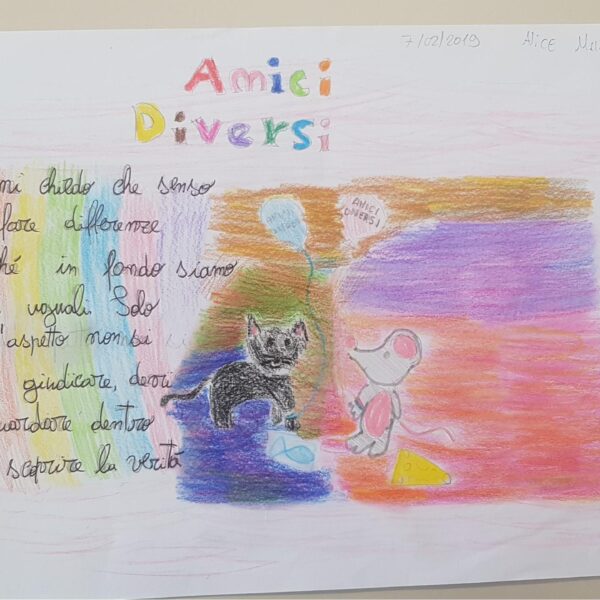 7/02/2019 Alice
Amici
Diversi
mi chiedo che senso
fare differenze
ché in fondo siamo
uguali Solo
l'aspetto non si
giudicare, devi
guardare dentro
scoprire la verità
AMICI
DIVERSI